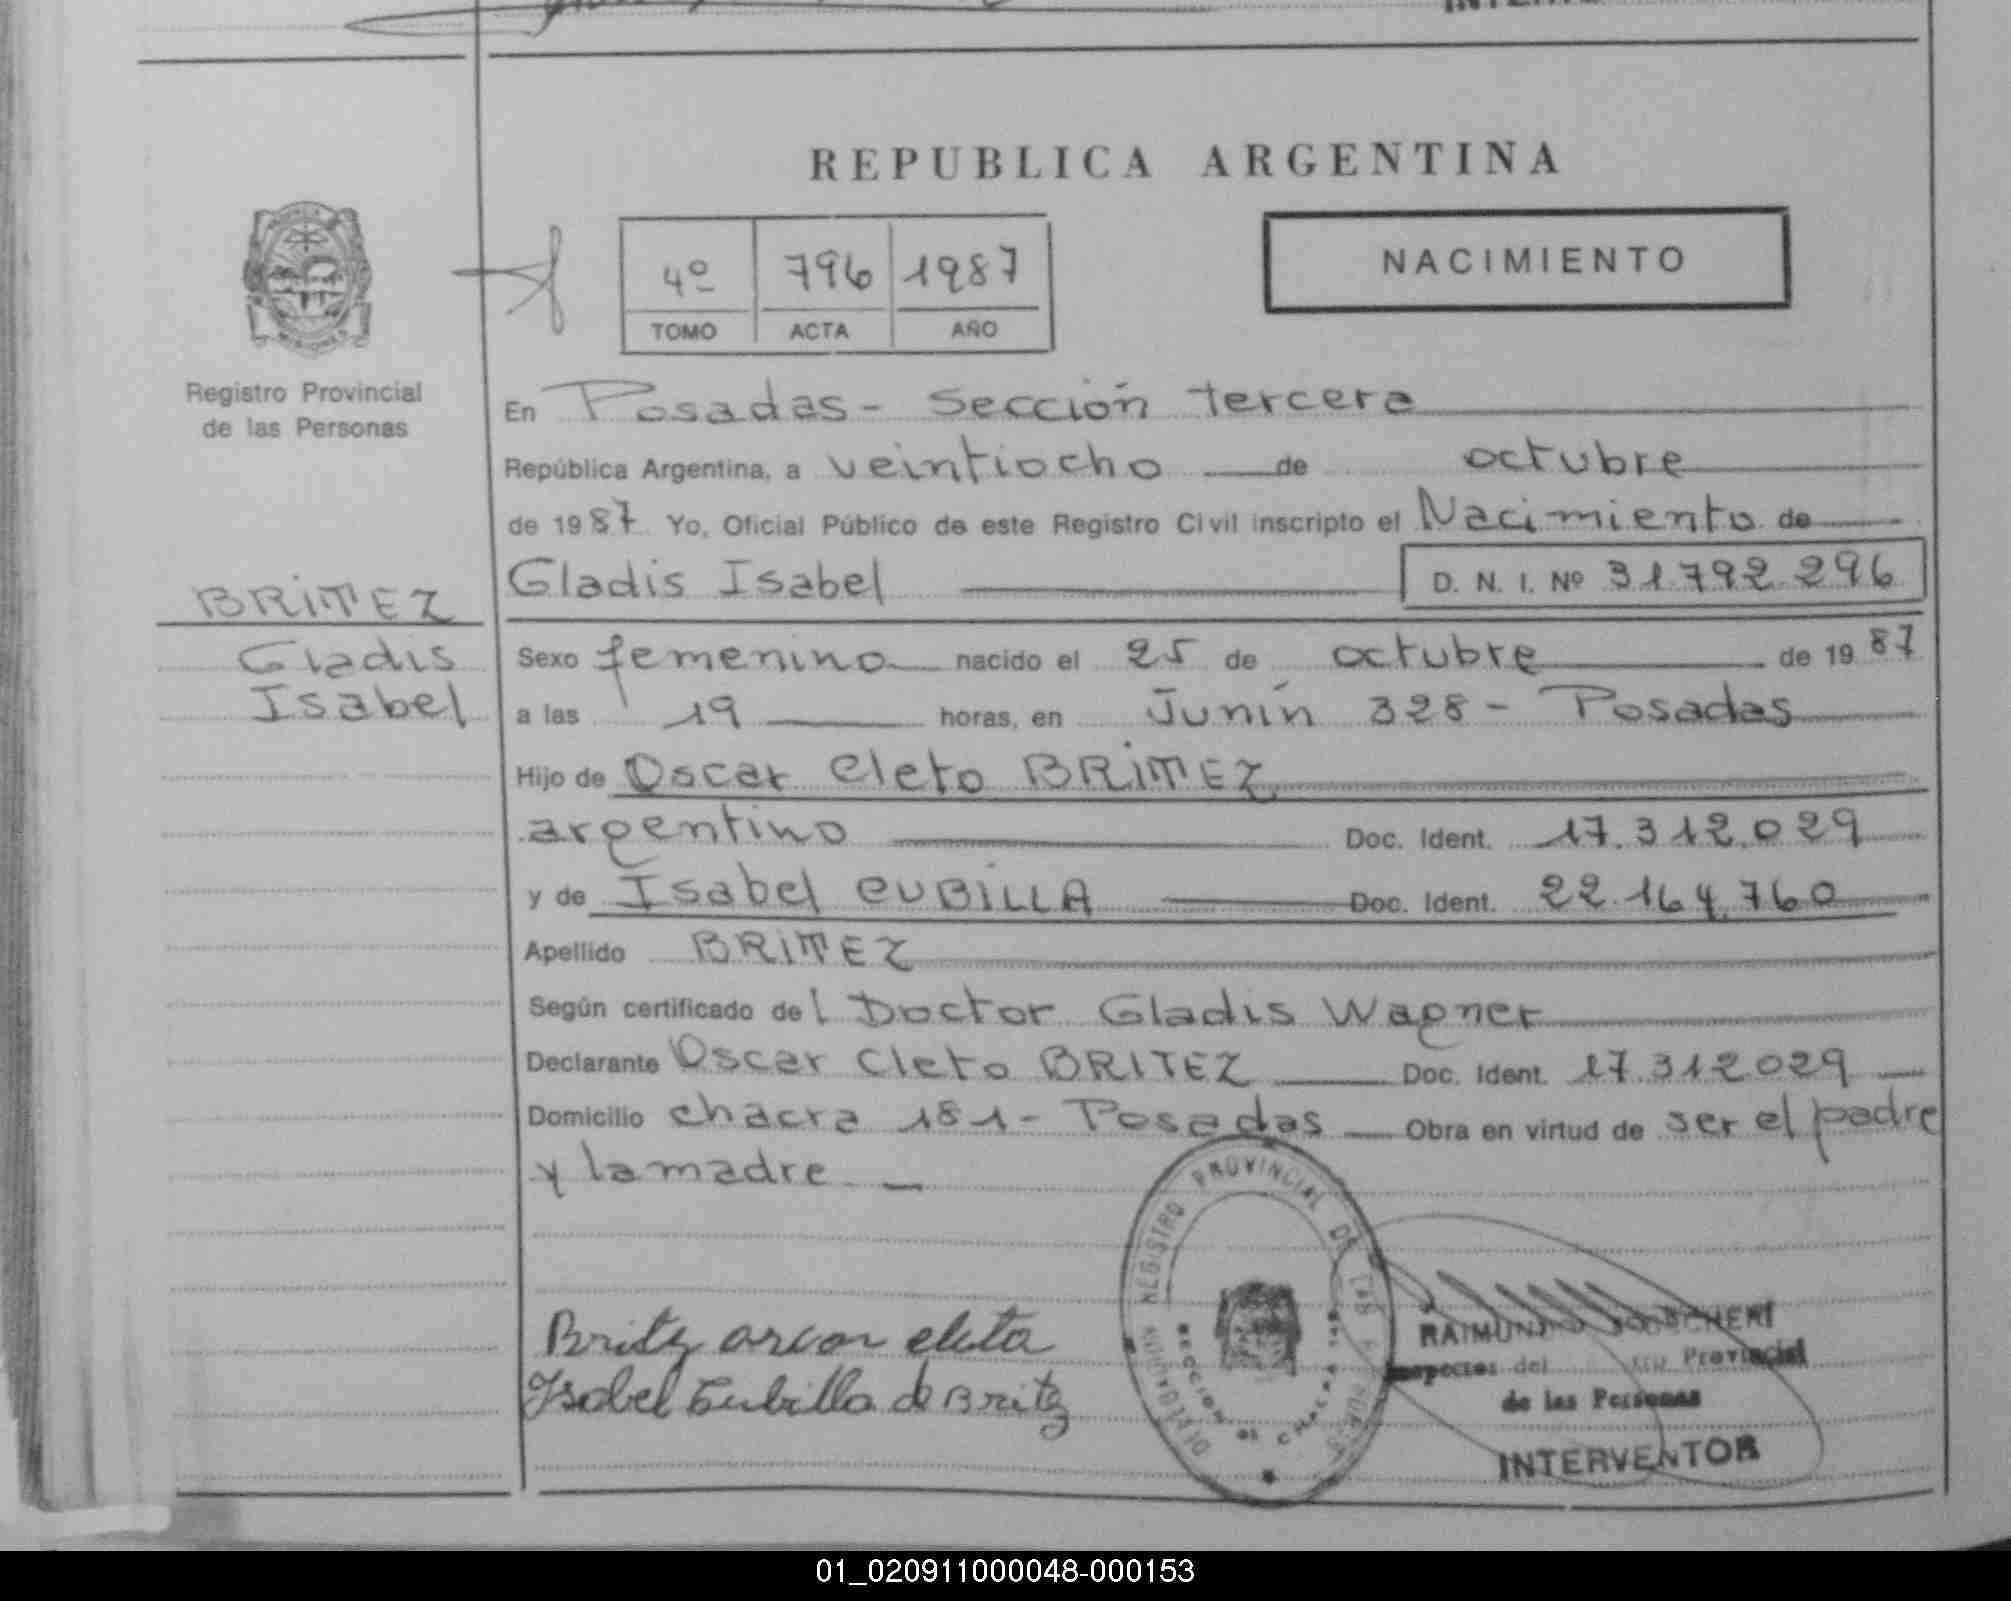 REPUBLICA ARGENTINA
NACIMIENTO
4º 796 1987
TOMO ACTA AÑO
Registro Provincial
de las Personas
En Posadas - Sección tercera
República Argentina, a veintiocho de octubre
de 1987 Yo, Oficial Público de este Registro Civil inscripto el Nacimiento de
Gladis Isabel D. N. I. Nº 31792296
BRITEZ
Gladis
Isabel
Sexo femenino nacido el 25 de octubre de 1987
a las 19 horas, en Junín 328 - Posadas
Hijo de Oscar Cleto BRITEZ
argentino Doc. Ident. 17.312.029
y de Isabel CUBILLA Doc. Ident. 22.164.760
Apellido BRITEZ
Según certificado del Doctor Gladis Wagner
Declarante Oscar Cleto BRITEZ Doc. Ident. 17.312029
Domicilio chacra 181 - Posadas Obra en virtud de ser el padre
y la madre
REGISTRO PROVINCIAL DE LAS
Britz oscar cleto
Isabel Cubilla de Britz
RAIMUNDO
Inspector del Provincial
de las Personas
INTERVENTOR
01_020911000048-000153